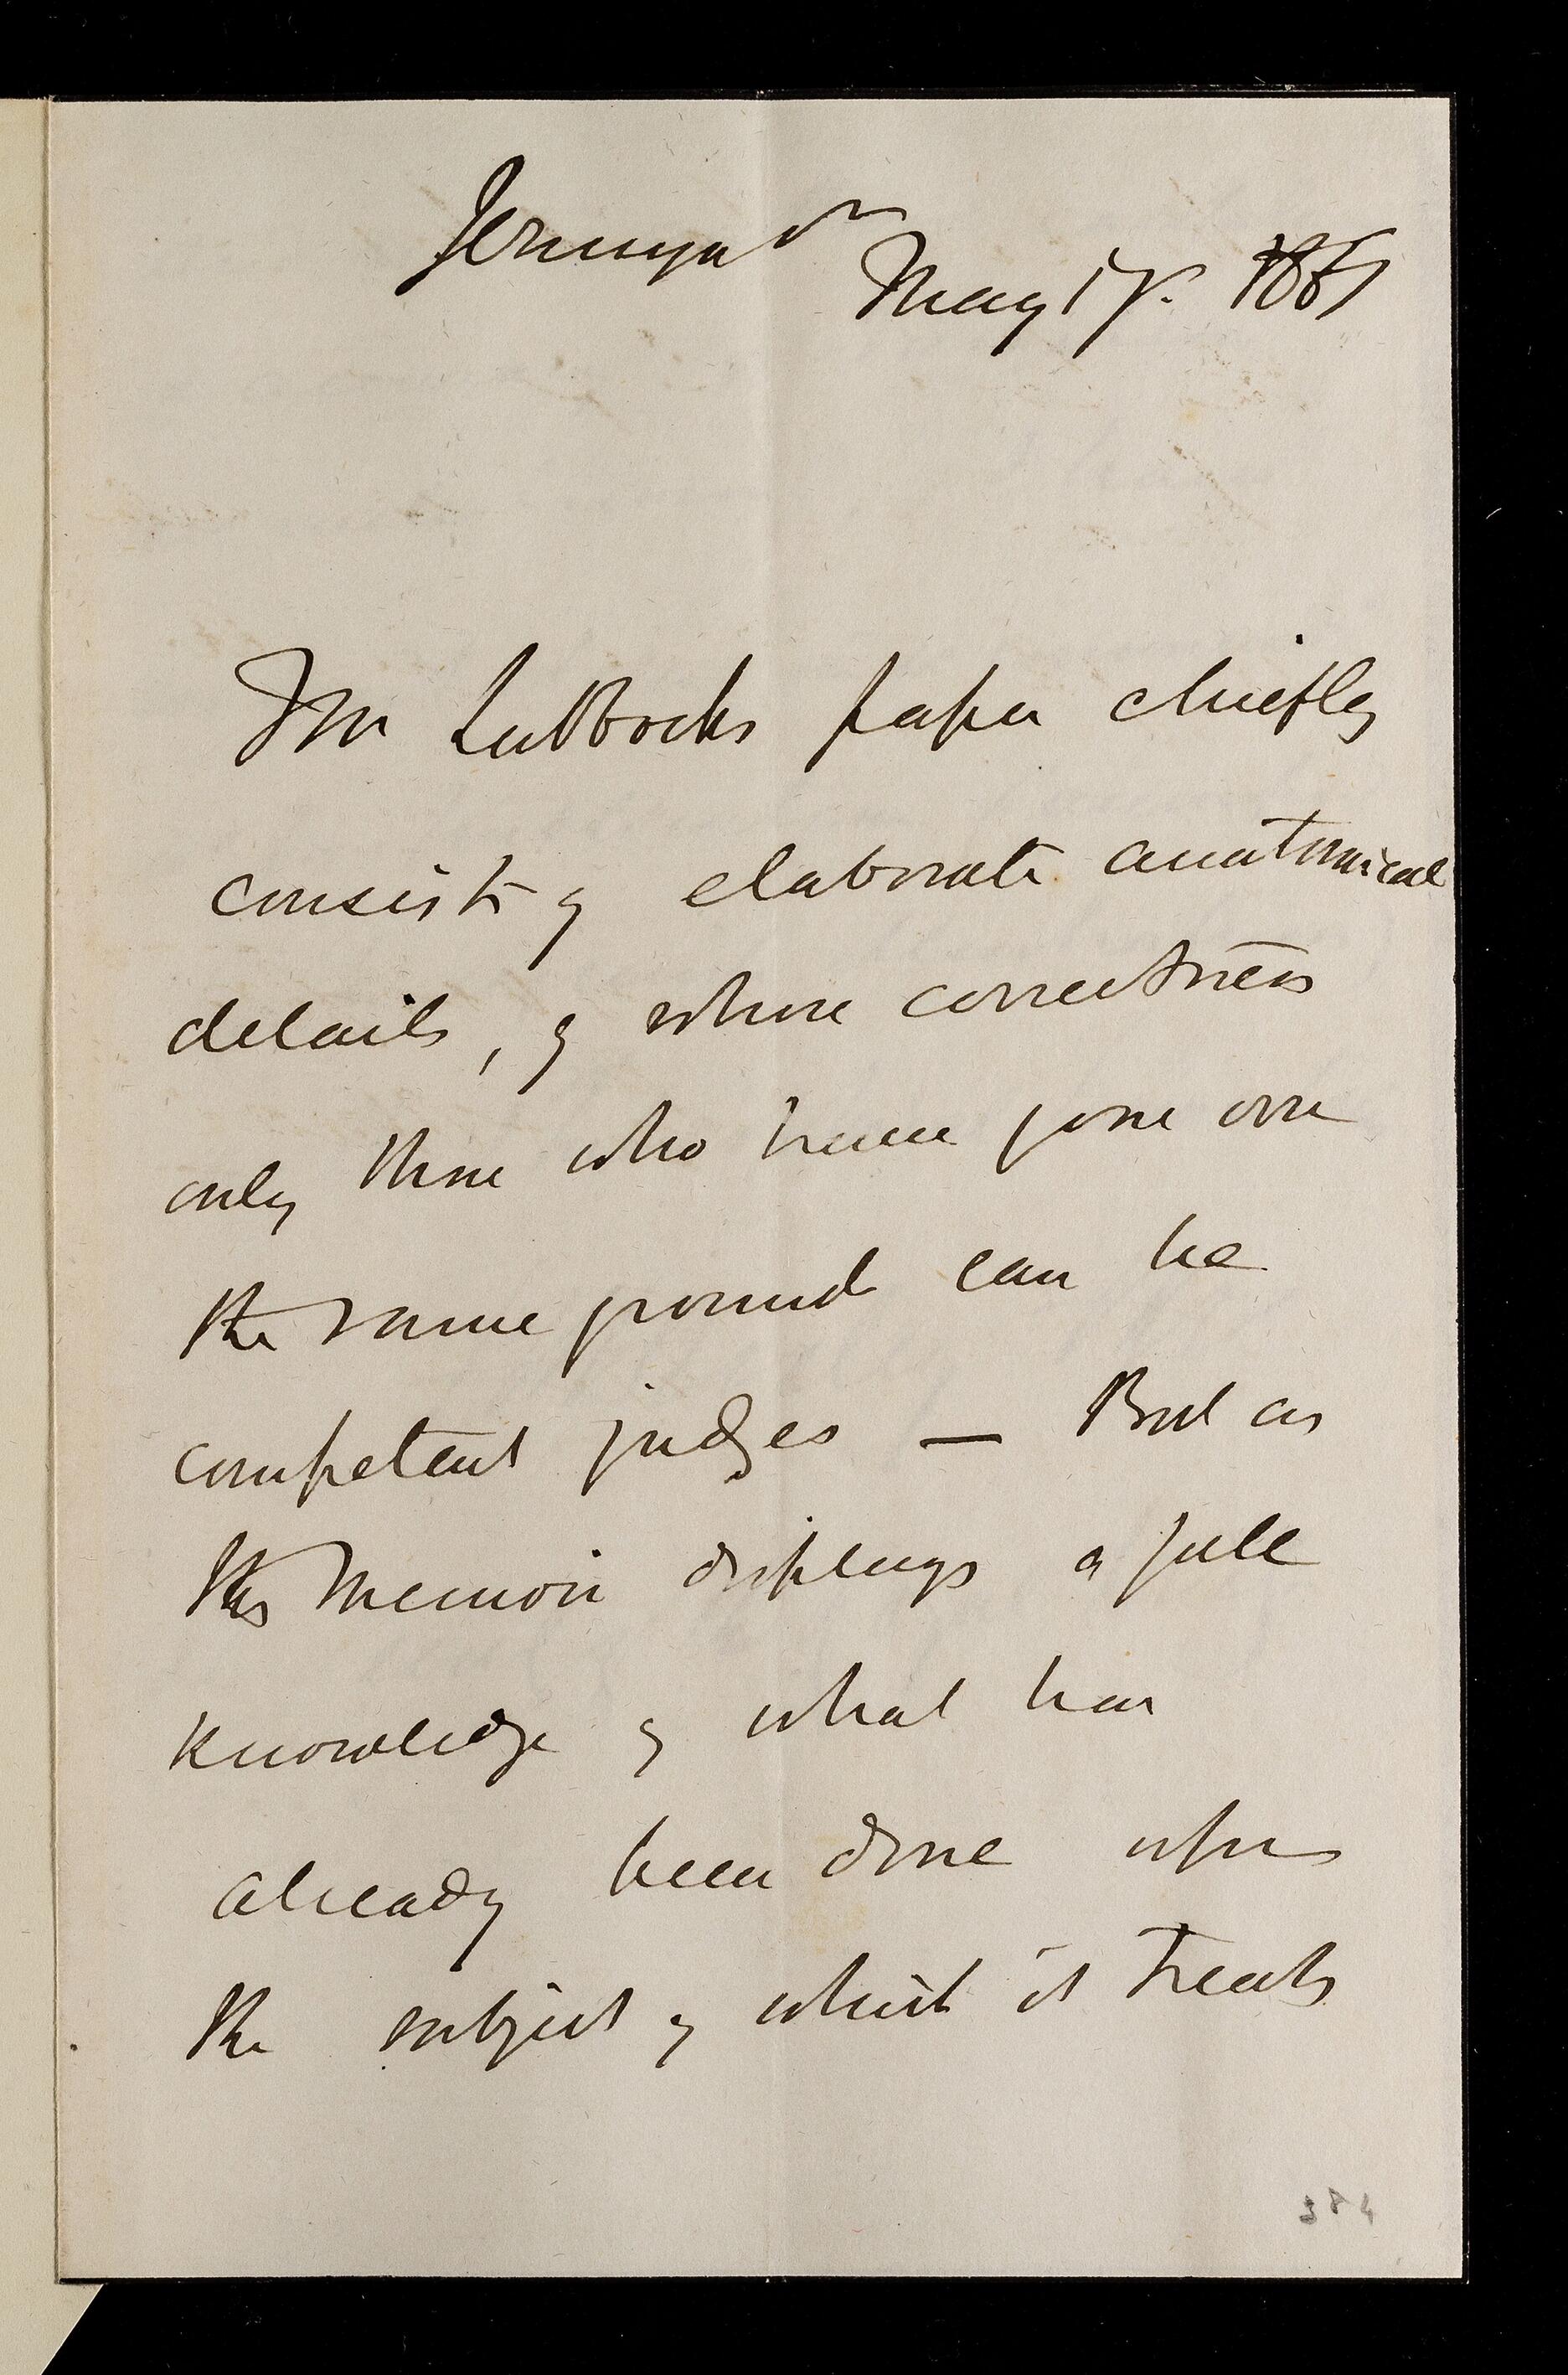 Jermyn St
May 17. 1861
Mr Lubbocks paper chiefly
consists of elaborate anatomical
details, of whose correctness
only those who have gone over
the same ground can be
competent judges — But as
this Memoir displays a full
knowledge of what has
already been done upon
the subject of which it treats
384